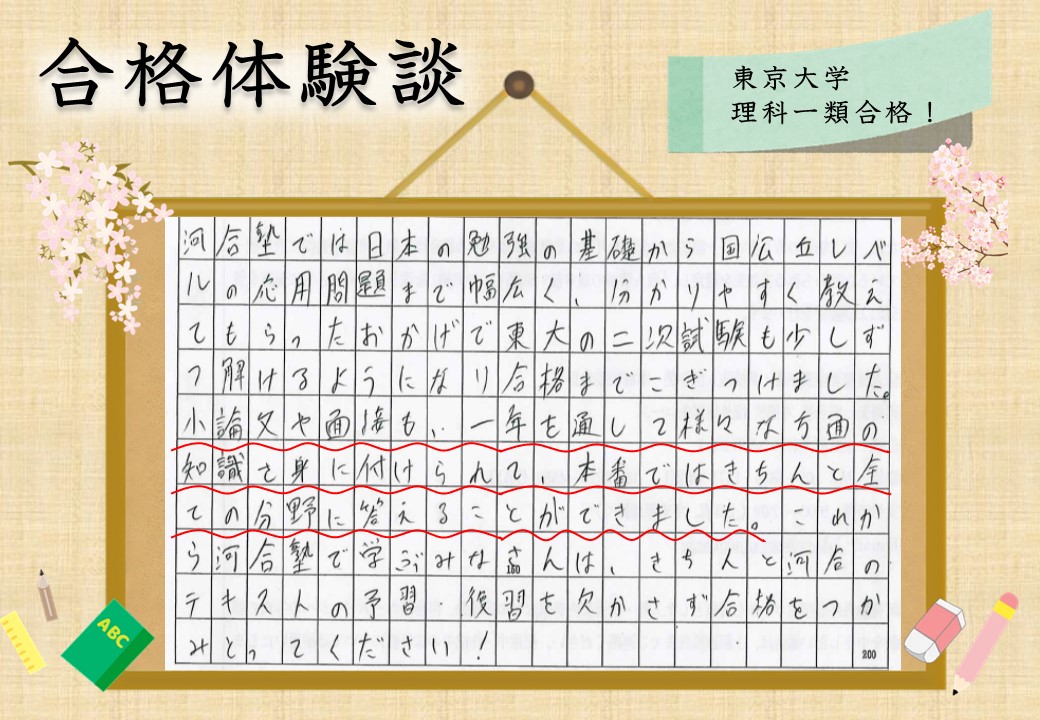 合格体験談
東京大学
理科一類合格！
河合塾では日本の勉強の基礎から国広立レベ
ルの応用問題まで幅広く、分かりやすく教え
てもらったおかげで東大の二次試験も少しず
つ解けるようになり合格までこぎつけました。
小論文や面接も、一年を通して様々な方面の
知識を身に付けられて、本番ではきちんと全
ての分野に答えることができました。これか
ら河合塾で学ぶみなさんは、きちんと河合の
テキストの予習、復習を欠かさず合格をつか
みとってください！
160
200
ABC